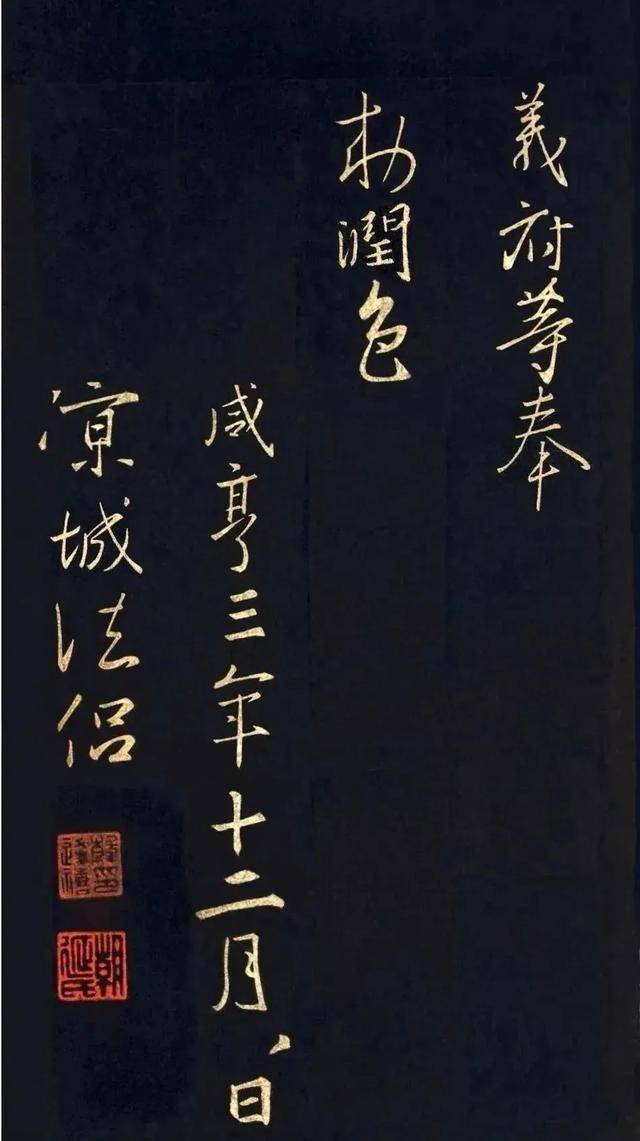 義府等奉
勅潤色
咸亨三年十二月八日
京城法侶